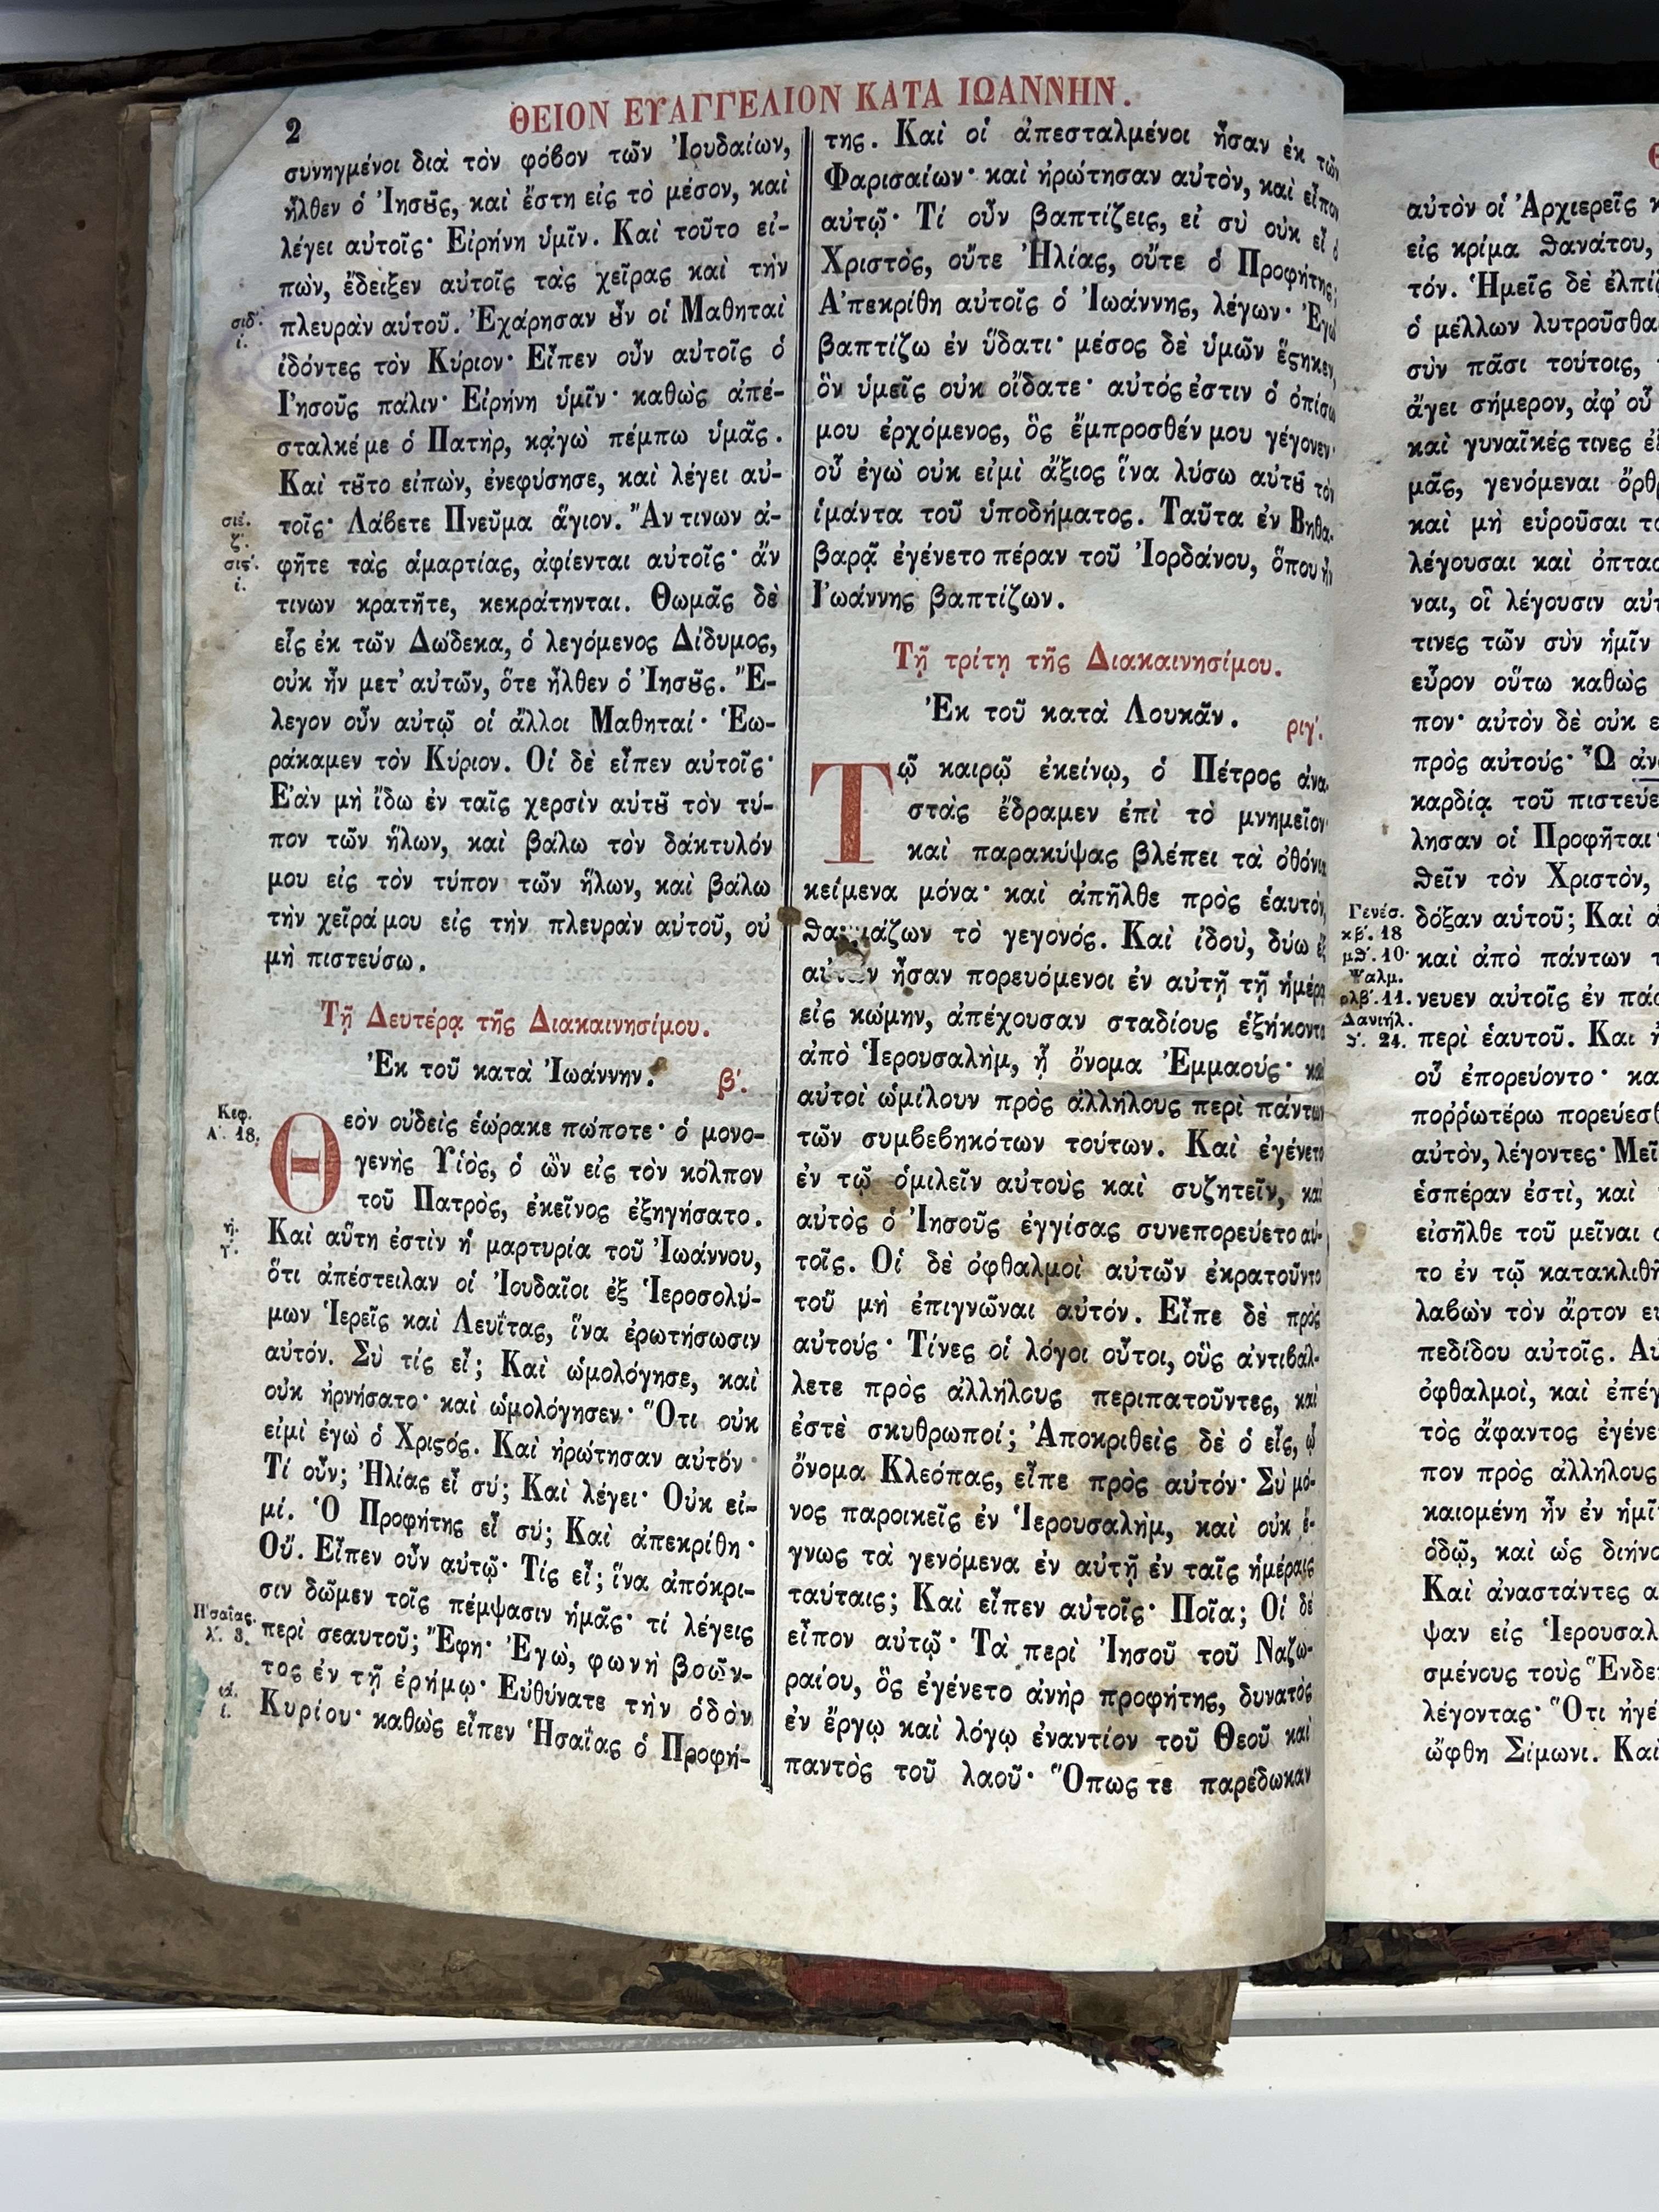 2
ΘΕΙΟΝ ΕΥΑΓΓΕΛΙΟΝ ΚΑΤΑ ΙΩΑΝΝΗΝ.
συνηγμένοι διὰ τὸν φόβον τῶν Ἰουδαίων,
ἦλθεν ὁ Ἰησȣ͂ς, καὶ ἔστη εἰς τὸ μέσον, καὶ
λέγει αὐτοῖς· Εἰρήνη ὑμῖν. Καὶ τοῦτο εἰ-
πὼν, ἔδειξεν αὐτοῖς τὰς χεῖρας καὶ τὴν
πλευρὰν αὑτοῦ. Ἐχάρησαν ȣ̓͂ν οἱ Μαθηταὶ
ἰδόντες τὸν Κύριον· Εἶπεν οὖν αὐτοῖς ὁ
Ἰησοῦς πάλιν· Εἰρήνη ὑμῖν· καθὼς ἀπέ-
σταλκέ με ὁ Πατὴρ, κᾀγὼ πέμπω ὑμᾶς.
Καὶ τȣ͂το εἰπὼν, ἐνεφύσησε, καὶ λέγει αὐ-
τοῖς· Λάβετε Πνεῦμα ἅγιον. Ἄν τινων ἀ-
φῆτε τὰς ἁμαρτίας, ἀφίενται αὐτοῖς· ἄν
τινων κρατῆτε, κεκράτηνται. Θωμᾶς δὲ
εἷς ἐκ τῶν Δώδεκα, ὁ λεγόμενος Δίδυμος,
οὐκ ἦν μετ' αὐτῶν, ὅτε ἦλθεν ὁ Ἰησȣ͂ς. Ἔ-
λεγον οὖν αὐτῷ οἱ ἄλλοι Μαθηταί· Ἑω-
ράκαμεν τὸν Κύριον. Ὁ δὲ εἶπεν αὐτοῖς·
Ἐὰν μὴ ἴδω ἐν ταῖς χερσὶν αὑτȣ͂ τὸν τύ-
πον τῶν ἥλων, καὶ βάλω τὸν δάκτυλόν
μου εἰς τὸν τύπον τῶν ἥλων, καὶ βάλω
τὴν χεῖρά μου εἰς τὴν πλευρὰν αὐτοῦ, οὐ
μὴ πιστεύσω.
Τῇ Δευτέρᾳ τῆς Διακαινησίμου.
Ἐκ τοῦ κατὰ Ἰωάννην. β´.
Κεφ.
Α´. 18.
Θεὸν οὐδεὶς ἑώρακε πώποτε· ὁ μονο-
γενὴς Υἱὸς, ὁ ὢν εἰς τὸν κόλπον
τοῦ Πατρὸς, ἐκεῖνος ἐξηγήσατο.
Καὶ αὕτη ἐστὶν ἡ μαρτυρία τοῦ Ἰωάννου,
ὅτι ἀπέστειλαν οἱ Ἰουδαῖοι ἐξ Ἱεροσολύ-
μων Ἱερεῖς καὶ Λευΐτας, ἵνα ἐρωτήσωσιν
αὐτόν. Σὺ τίς εἶ; Καὶ ὡμολόγησε, καὶ
οὐκ ἠρνήσατο· καὶ ὡμολόγησεν· Ὅτι οὐκ
εἰμὶ ἐγὼ ὁ Χριϛός. Καὶ ἠρώτησαν αὐτόν·
Τί οὖν; Ἠλίας εἶ σύ; Καὶ λέγει· Οὐκ εἰ-
μί. Ὁ Προφήτης εἶ σύ; Καὶ ἀπεκρίθη·
Οὔ. Εἶπεν οὖν αὐτῷ· Τίς εἶ; ἵνα ἀπόκρι-
σιν δῶμεν τοῖς πέμψασιν ἡμᾶς· τί λέγεις
περὶ σεαυτοῦ; Ἔφη· Ἐγὼ, φωνὴ βοῶν-
τος ἐν τῇ ἐρήμῳ· Εὐθύνατε τὴν ὁδὸν
Κυρίου· καθὼς εἶπεν Ἡσαΐας ὁ Προφή-
της. Καὶ οἱ ἀπεσταλμένοι ἦσαν ἐκ τῶν
Φαρισαίων· καὶ ἠρώτησαν αὐτὸν, καὶ εἶπον
αὐτῷ· Τί οὖν βαπτίζεις, εἰ σὺ οὐκ εἶ ὁ
Χριστὸς, οὔτε Ἠλίας, οὔτε ὁ Προφήτης;
Ἀπεκρίθη αὐτοῖς ὁ Ἰωάννης, λέγων· Ἐγὼ
βαπτίζω ἐν ὕδατι· μέσος δὲ ὑμῶν ἕϛηκεν,
ὃν ὑμεῖς οὐκ οἴδατε· αὐτός ἐστιν ὁ ὀπίσω
μου ἐρχόμενος, ὃς ἔμπροσθέν μου γέγονεν·
οὗ ἐγὼ οὐκ εἰμὶ ἄξιος ἵνα λύσω αὐτȣ͂ τὸν
ἱμάντα τοῦ ὑποδήματος. Ταῦτα ἐν Βηθα-
βαρᾷ ἐγένετο πέραν τοῦ Ἰορδάνου, ὅπου ἦν
Ἰωάννης βαπτίζων.
Τῇ τρίτῃ τῆς Διακαινησίμου.
Ἐκ τοῦ κατὰ Λουκᾶν. ριγ´.
Τῷ καιρῷ ἐκείνῳ, ὁ Πέτρος ἀνα-
στὰς ἔδραμεν ἐπὶ τὸ μνημεῖον·
καὶ παρακύψας βλέπει τὰ ὀθόνια
κείμενα μόνα· καὶ ἀπῆλθε πρὸς ἑαυτὸν,
θαυμάζων τὸ γεγονός. Καὶ ἰδοὺ, δύω ἐξ
αὐτῶν ἦσαν πορευόμενοι ἐν αὐτῇ τῇ ἡμέρᾳ
εἰς κώμην, ἀπέχουσαν σταδίους ἑξήκοντα
ἀπὸ Ἱερουσαλὴμ, ᾗ ὄνομα Ἐμμαούς· καὶ
αὐτοὶ ὡμίλουν πρὸς ἀλλήλους περὶ πάντων
τῶν συμβεβηκότων τούτων. Καὶ ἐγένετο
ἐν τῷ ὁμιλεῖν αὐτοὺς καὶ συζητεῖν, καὶ
αὐτὸς ὁ Ἰησοῦς ἐγγίσας συνεπορεύετο αὐ-
τοῖς. Οἱ δὲ ὀφθαλμοὶ αὐτῶν ἐκρατοῦντο
τοῦ μὴ ἐπιγνῶναι αὐτόν. Εἶπε δὲ πρὸς
αὐτούς· Τίνες οἱ λόγοι οὗτοι, οὓς ἀντιβάλ-
λετε πρὸς ἀλλήλους περιπατοῦντες, καὶ
ἐστὲ σκυθρωποί; Ἀποκριθεὶς δὲ ὁ εἷς, ᾧ
ὄνομα Κλεόπας, εἶπε πρὸς αὐτόν· Σὺ μό-
νος παροικεῖς ἐν Ἱερουσαλὴμ, καὶ οὐκ ἔ-
γνως τὰ γενόμενα ἐν αὐτῇ ἐν ταῖς ἡμέραις
ταύταις; Καὶ εἶπεν αὐτοῖς· Ποῖα; Οἱ δὲ
εἶπον αὐτῷ· Τὰ περὶ Ἰησοῦ τοῦ Ναζω-
ραίου, ὃς ἐγένετο ἀνὴρ προφήτης, δυνατὸς
ἐν ἔργῳ καὶ λόγῳ ἐναντίον τοῦ Θεοῦ καὶ
παντὸς τοῦ λαοῦ· Ὅπως τε παρέδωκαν
αὐτὸν οἱ Ἀρχιερεῖς
εἰς κρίμα θανάτου,
τόν. Ἡμεῖς δὲ
ὁ μέλλων λυτροῦσθα
σὺν πᾶσι τούτοις,
ἄγει σήμερον, ἀφ' οὗ
καὶ γυναῖκές τινες
μᾶς, γενόμεναι
καὶ μὴ εὑροῦσαι
λέγουσαι καὶ
ναι, οἳ λέγουσιν
τινες τῶν σὺν ἡμῖν
εὗρον οὕτω καθὼς
πον· αὐτὸν δὲ οὐκ
πρὸς αὐτούς· Ὦ
καρδίᾳ τοῦ
λησαν οἱ Προφῆται
θεῖν τὸν Χριστὸν,
δόξαν αὑτοῦ; Καὶ
καὶ ἀπὸ πάντων
νευεν αὐτοῖς ἐν
περὶ ἑαυτοῦ. Καὶ
οὗ ἐπορεύοντο·
ποῤῥωτέρω
αὐτὸν, λέγοντες·
ἑσπέραν ἐστὶ, καὶ
εἰσῆλθε τοῦ μεῖναι
το ἐν τῷ
λαβὼν τὸν ἄρτον
πεδίδου αὐτοῖς.
ὀφθαλμοὶ, καὶ
τὸς ἄφαντος
πον πρὸς ἀλλήλους
καιομένη ἦν ἐν
ὁδῷ, καὶ ὡς
Καὶ ἀναστάντες
ψαν εἰς
σμένους τοὺς
λέγοντας· Ὅτι
ὤφθη Σίμωνι. Καὶ